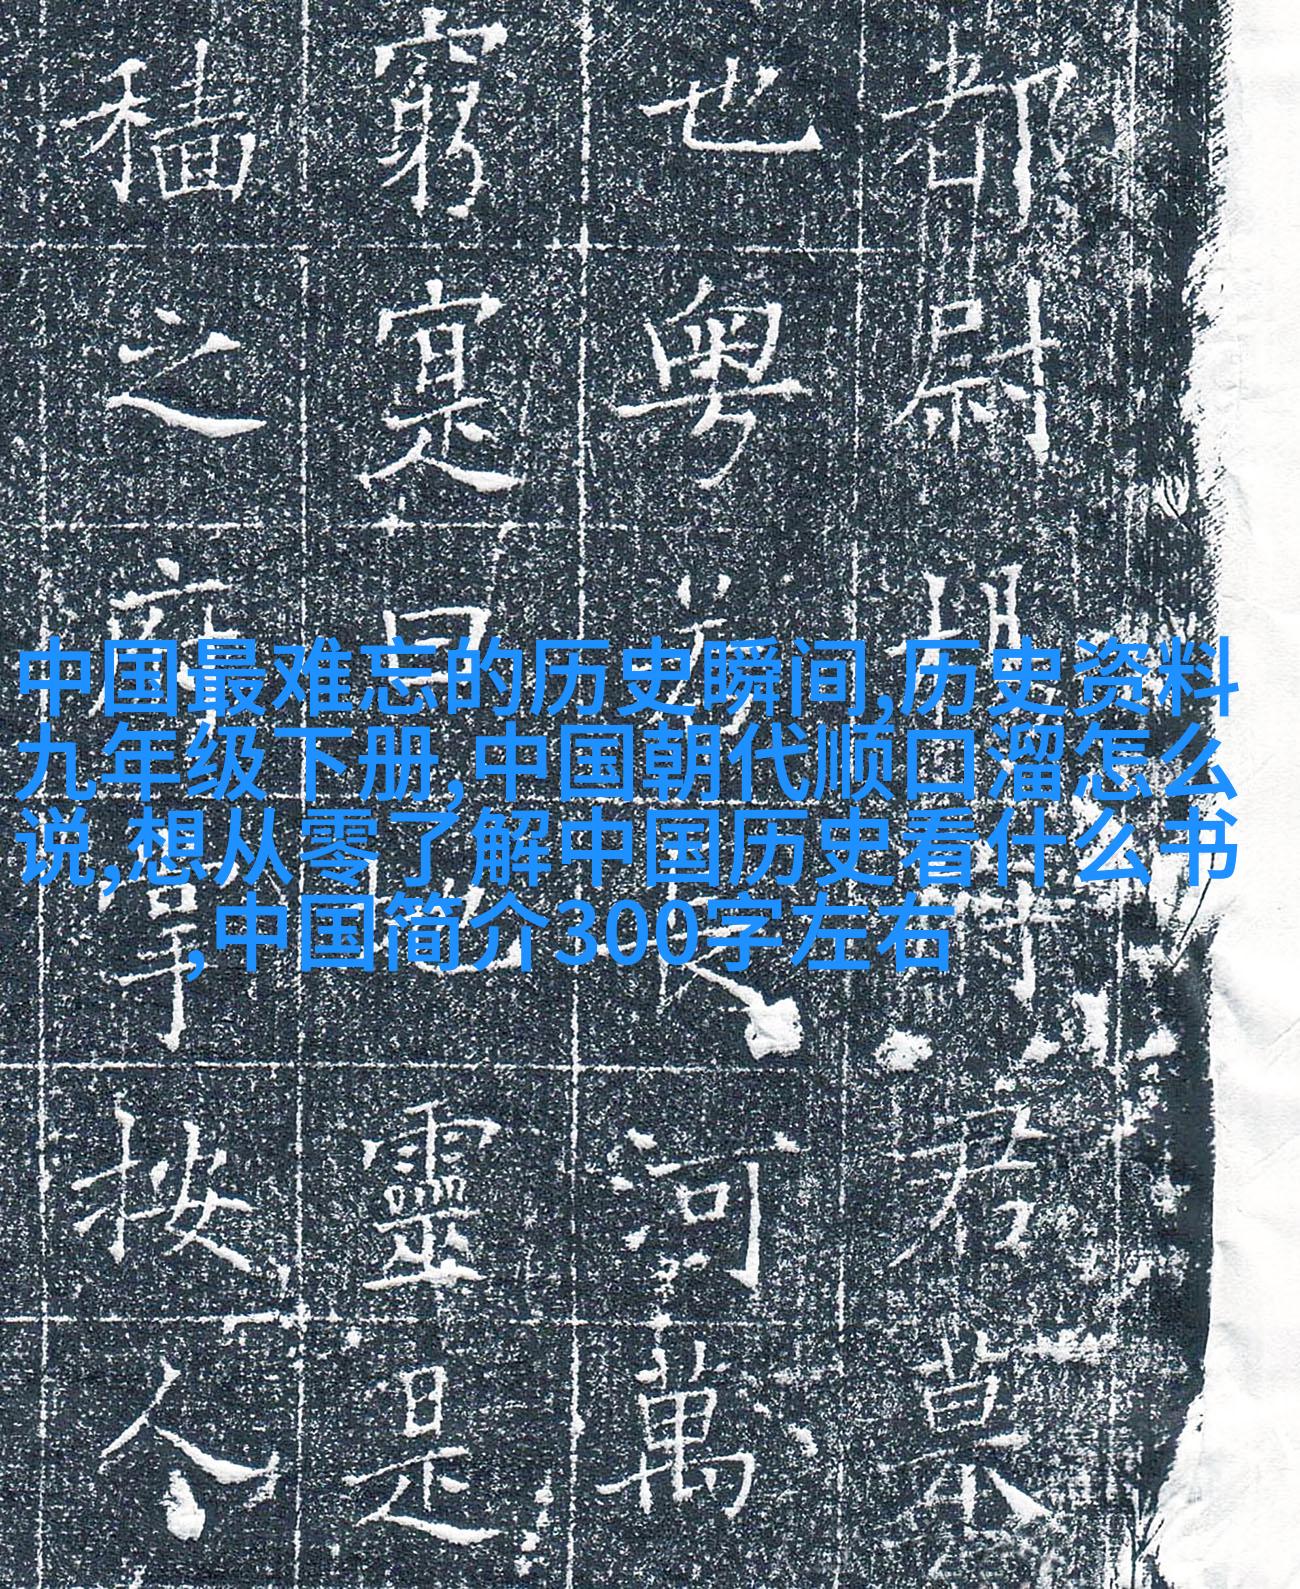 中国最难忘的历史瞬间,历史资料
九年级下册,中国朝代顺口溜怎么
说,想从零了解中国历史看什么书
,中国简介300字左右
都尉君
也粤河萬
窮寔曰靈是
穡之按人